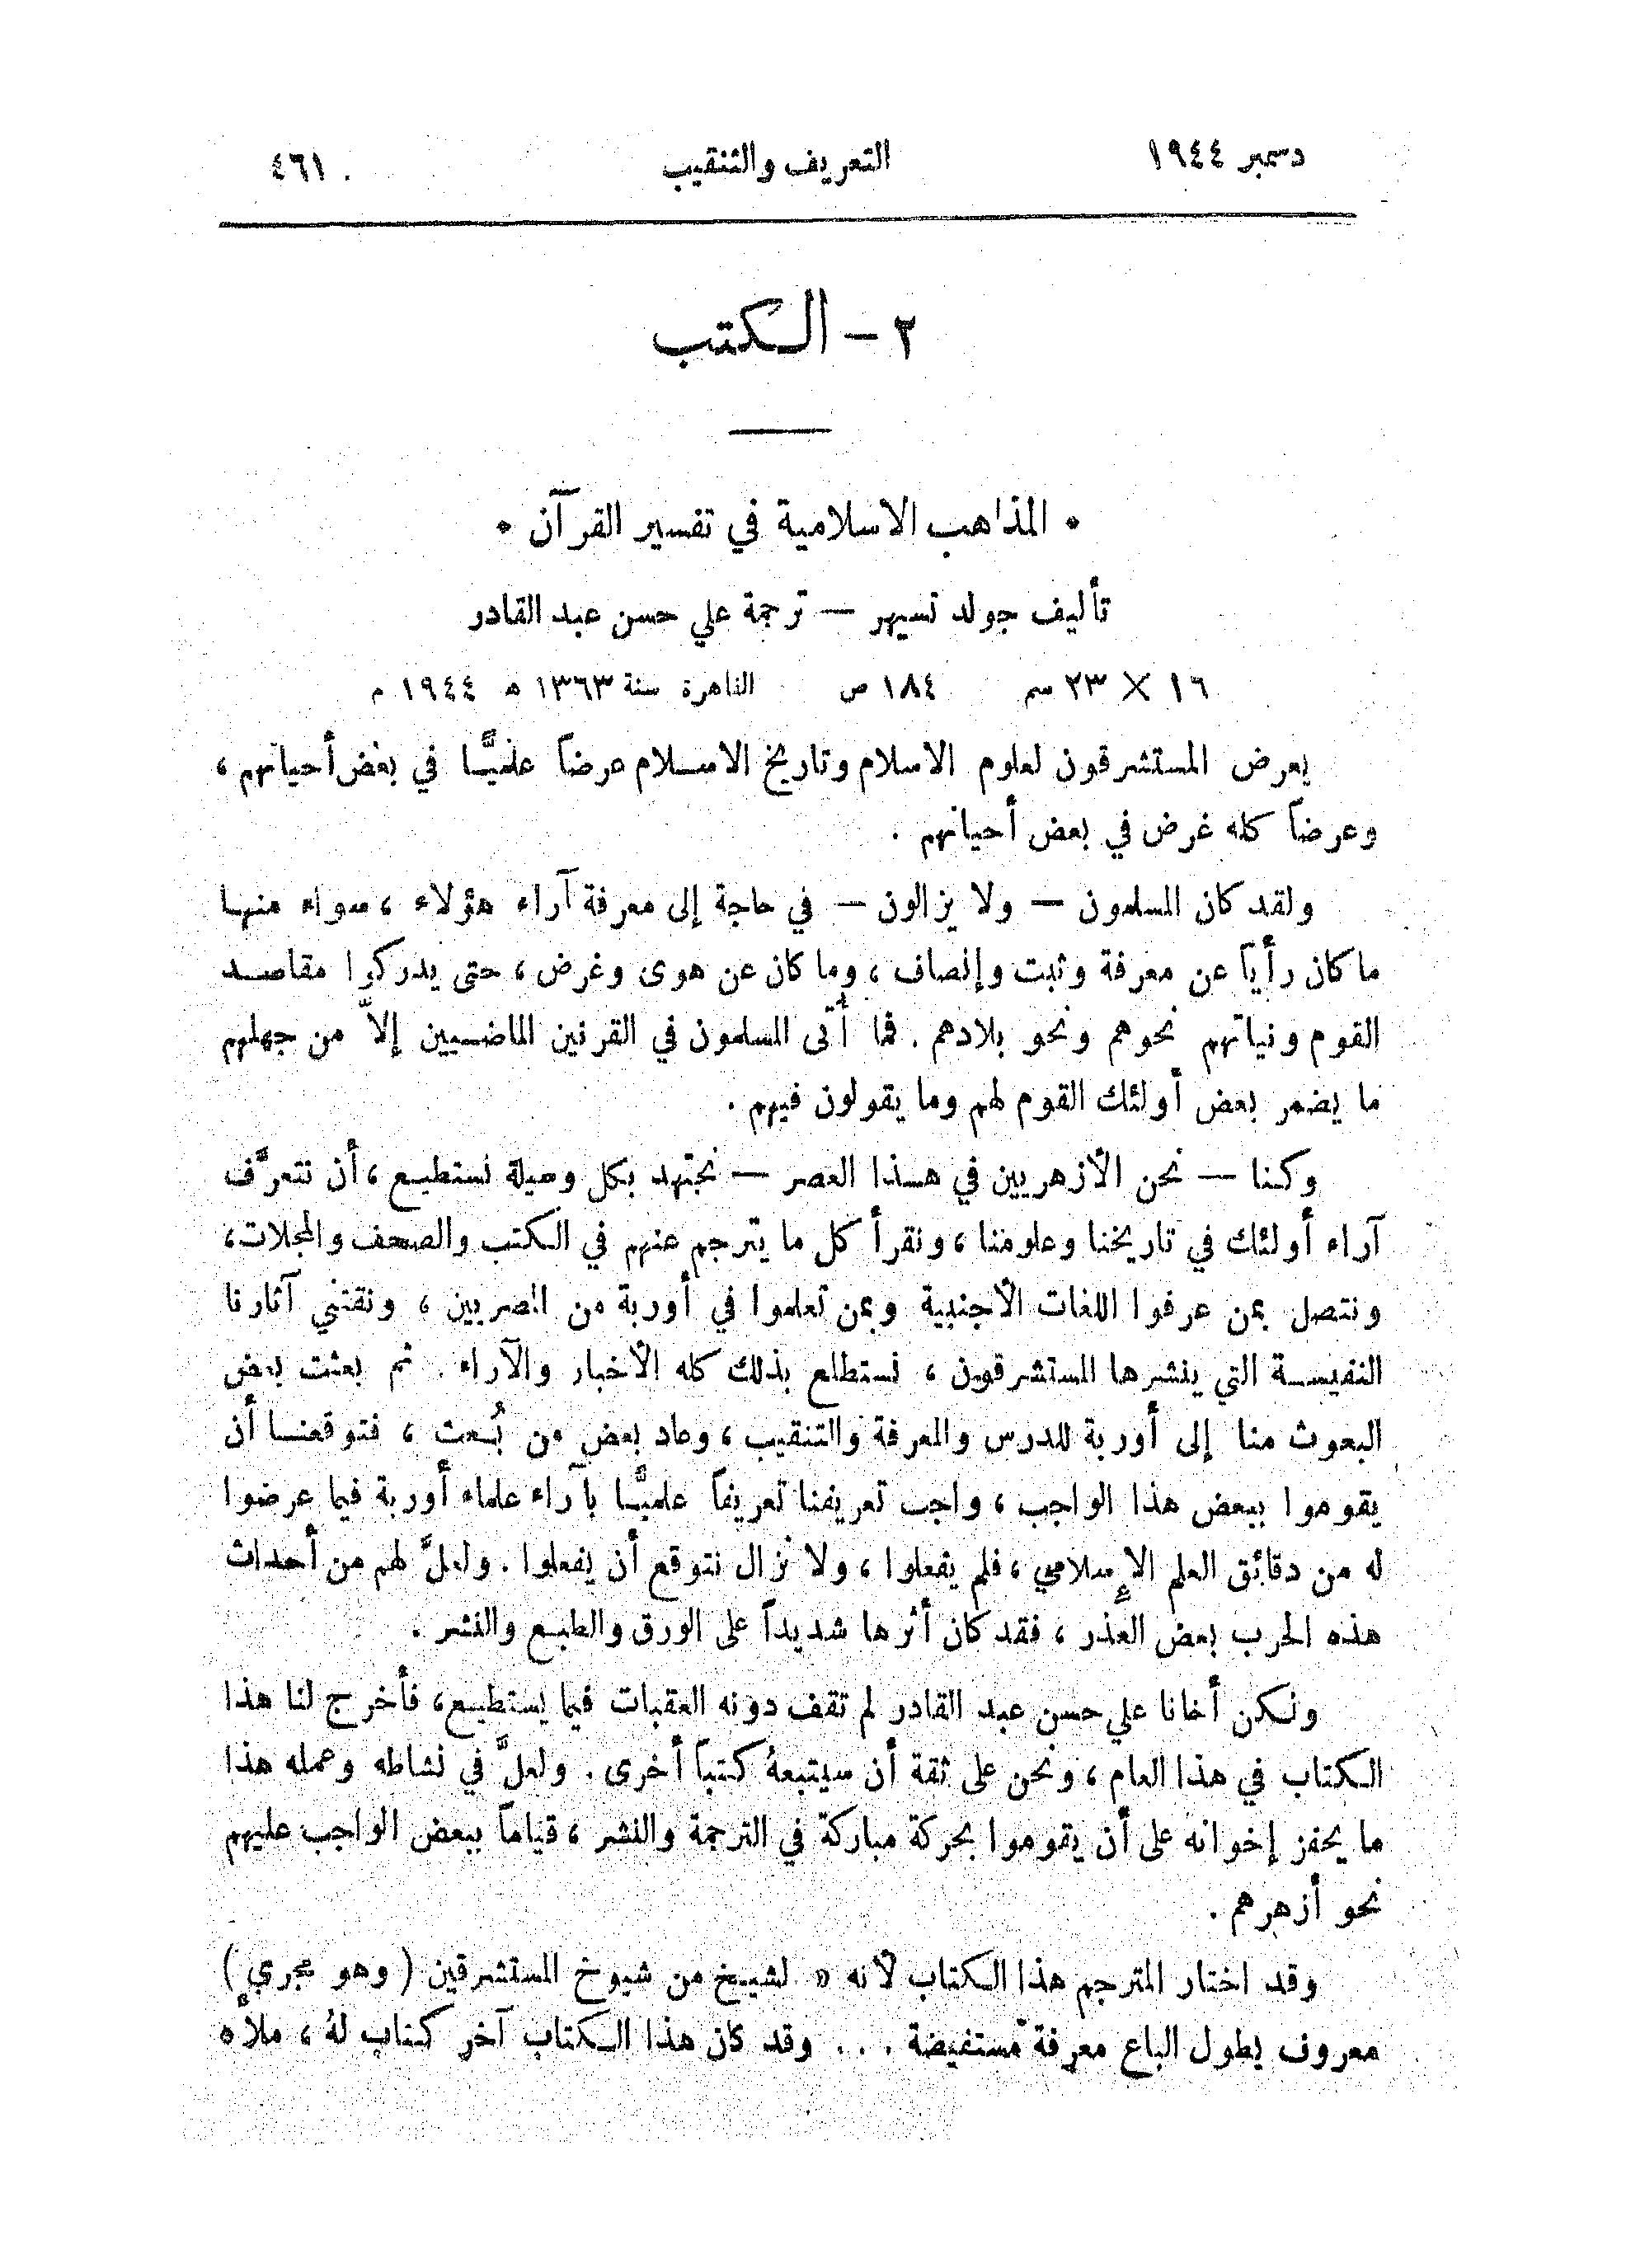 دسمبر ١٩٤٤ التعريف والتنقيب ٤٦١
٢ - الكتب
• المذاهب الاسلامية في تفسير القرآن •
تأليف جولد تسيهر — ترجمة علي حسن عبد القادر
١٦ × ٢٣ سم ١٨٤ ص القاهرة سنة ١٣٦٣ ه ١٩٤٤ م
يعرض المستشرقون لعلوم الاسلام وتاريخ الاسلام عرضاً علميًّا في بعض أحيانهم ،
وعرضاً كله غرض في بعض أحيانهم .
ولقد كان المسلمون — ولا يزالون — في حاجة إلى معرفة آراء هؤلاء ، سواء منها
ما كان رأياً عن معرفة وثبت وإنصاف ، وما كان عن هوى وغرض ، حتى يدركوا مقاصد
القوم ونياتهم نحوهم ونحو بلادهم . فما أُتى المسلمون في القرنين الماضيين إلاَّ من جهلهم
ما يضمر بعض أولئك القوم لهم وما يقولون فيهم .
وكنا — نحن الأزهريين في هذا العصر — نجتهد بكل وسيلة نستطيع ، أن نتعرَّف
آراء أولئك في تاريخنا وعلومنا ، ونقرأ كل ما يترجم عنهم في الكتب والصحف والمجلات ،
ونتصل بمن عرفوا اللغات الأجنبية وبمن تعلموا في أوربة من المصريين ، ونقتني آثارنا
النفيسة التي ينشرها المستشرقون ، نستطلع بذلك كله الأخبار والآراء . ثم بعثت بعض
البعوث منا إلى أوربة للدرس والمعرفة والتنقيب ، وعاد بعض من بُعث ، فتوقعنا أن
يقوموا ببعض هذا الواجب ، واجب تعريفنا تعريفاً علميًّا بآراء علماء أوربة فيما عرضوا
له من دقائق العلم الإسلامي ، فلم يفعلوا ، ولا نزال نتوقع أن يفعلوا . ولعلَّ لهم من أحداث
هذه الحرب بعض العذر ، فقد كان أثرها شديداً على الورق والطبع والنشر .
ولكن أخانا علي حسن عبد القادر لم تقف دونه العقبات فيما يستطيع ، فأخرج لنا هذا
الكتاب في هذا العام ، ونحن على ثقة أن سيتبعهُ كتباً أخرى . ولعلَّ في نشاطه وعمله هذا
ما يحفز إخوانه على أن يقوموا بحركة مباركة في الترجمة والنشر ، قياماً ببعض الواجب عليهم
نحو أزهرهم .
وقد اختار المترجم هذا الكتاب لأنه « لشيخ من شيوخ المستشرقين ( وهو مجري )
معروف بطول الباع معرفة مستفيضة . . . وقد كان هذا الكتاب آخر كتاب لهُ ، ملأه